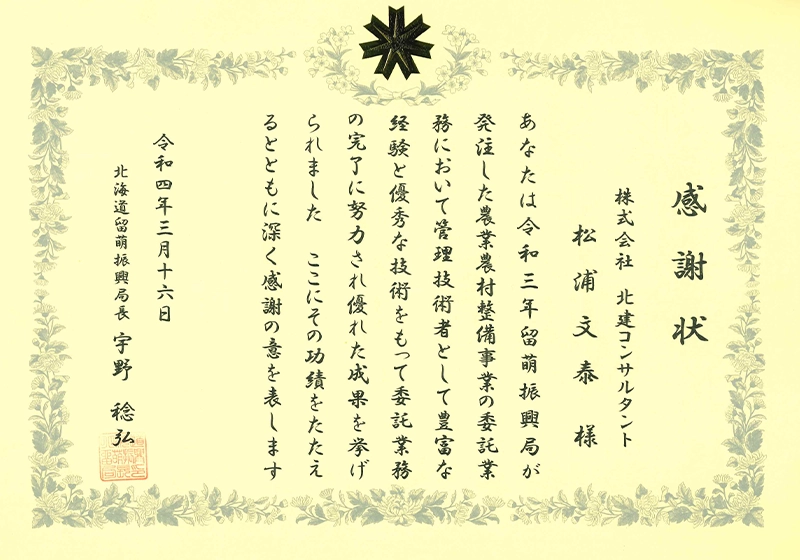 感謝状
株式会社 北建コンサルタント
松浦文泰様
あなたは令和三年留萌振興局が
発注した農業農村整備事業の委託業
務において管理技術者として豊富な
経験と優秀な技術をもって委託業務
の完了に努力され優れた成果を挙げ
られました ここにその功績をたたえ
るとともに深く感謝の意を表します
令和四年三月十六日
北海道留萌振興局長 宇野稔弘